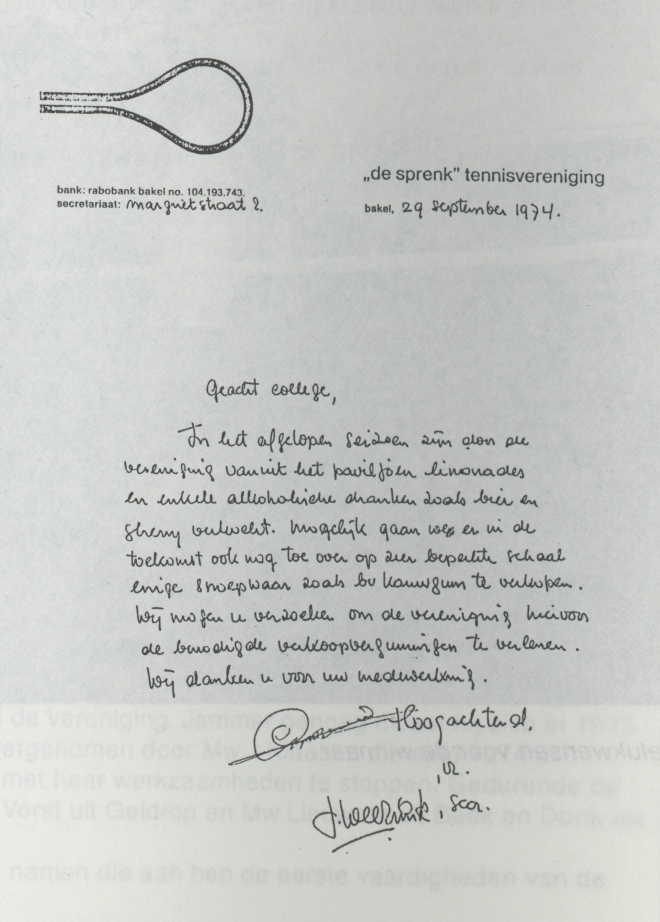 bank: rabobank bakel no. 104.193.743.
secretariaat: margrietstraat 2.
„de sprenk” tennisvereniging
bakel, 29 september 1974.
Geacht college,
In het afgelopen seizoen zijn door de
vereniging vanuit het paviljoen limonades
en enkele alkoholische dranken zoals bier en
sherry verkocht. Mogelijk gaan we er in de
toekomst ook nog toe over op zeer beperkte schaal
enige snoepwaar zoals bv kauwgum te verkopen.
Wij mogen u verzoeken om de vereniging hiervoor
de benodigde verkoopvergunningen te verlenen.
Wij danken u voor uw medewerking.
Hoogachtend.
, scr.
de vereniging. Jammer
in 1975
ergenomen door Mw
elukwensen voor de winnaar
met haar werkzaamheden te stoppen. Gedurende de
Vorst uit Geldrop en Mw
en Donk als
namen die aan hen de eerste vaardigheden van de